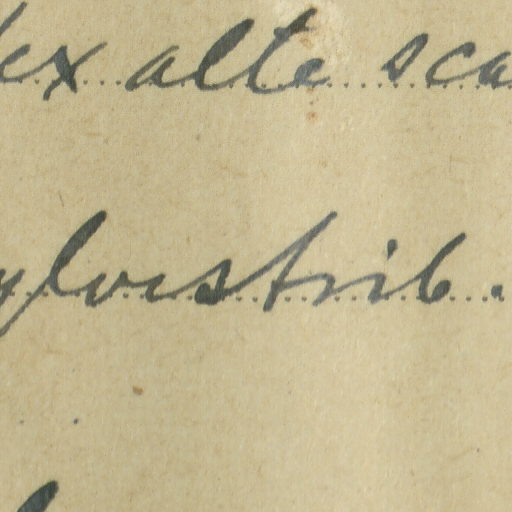 ex alte sca
ylvestrib.